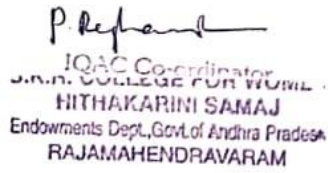 IQAC Co-ordinator
COLLEGE FOR
HITHAKARINI SAMAJ
Endowments Dept.,Govt.of Andhra Pradesh
RAJAMAHENDRAVARAM